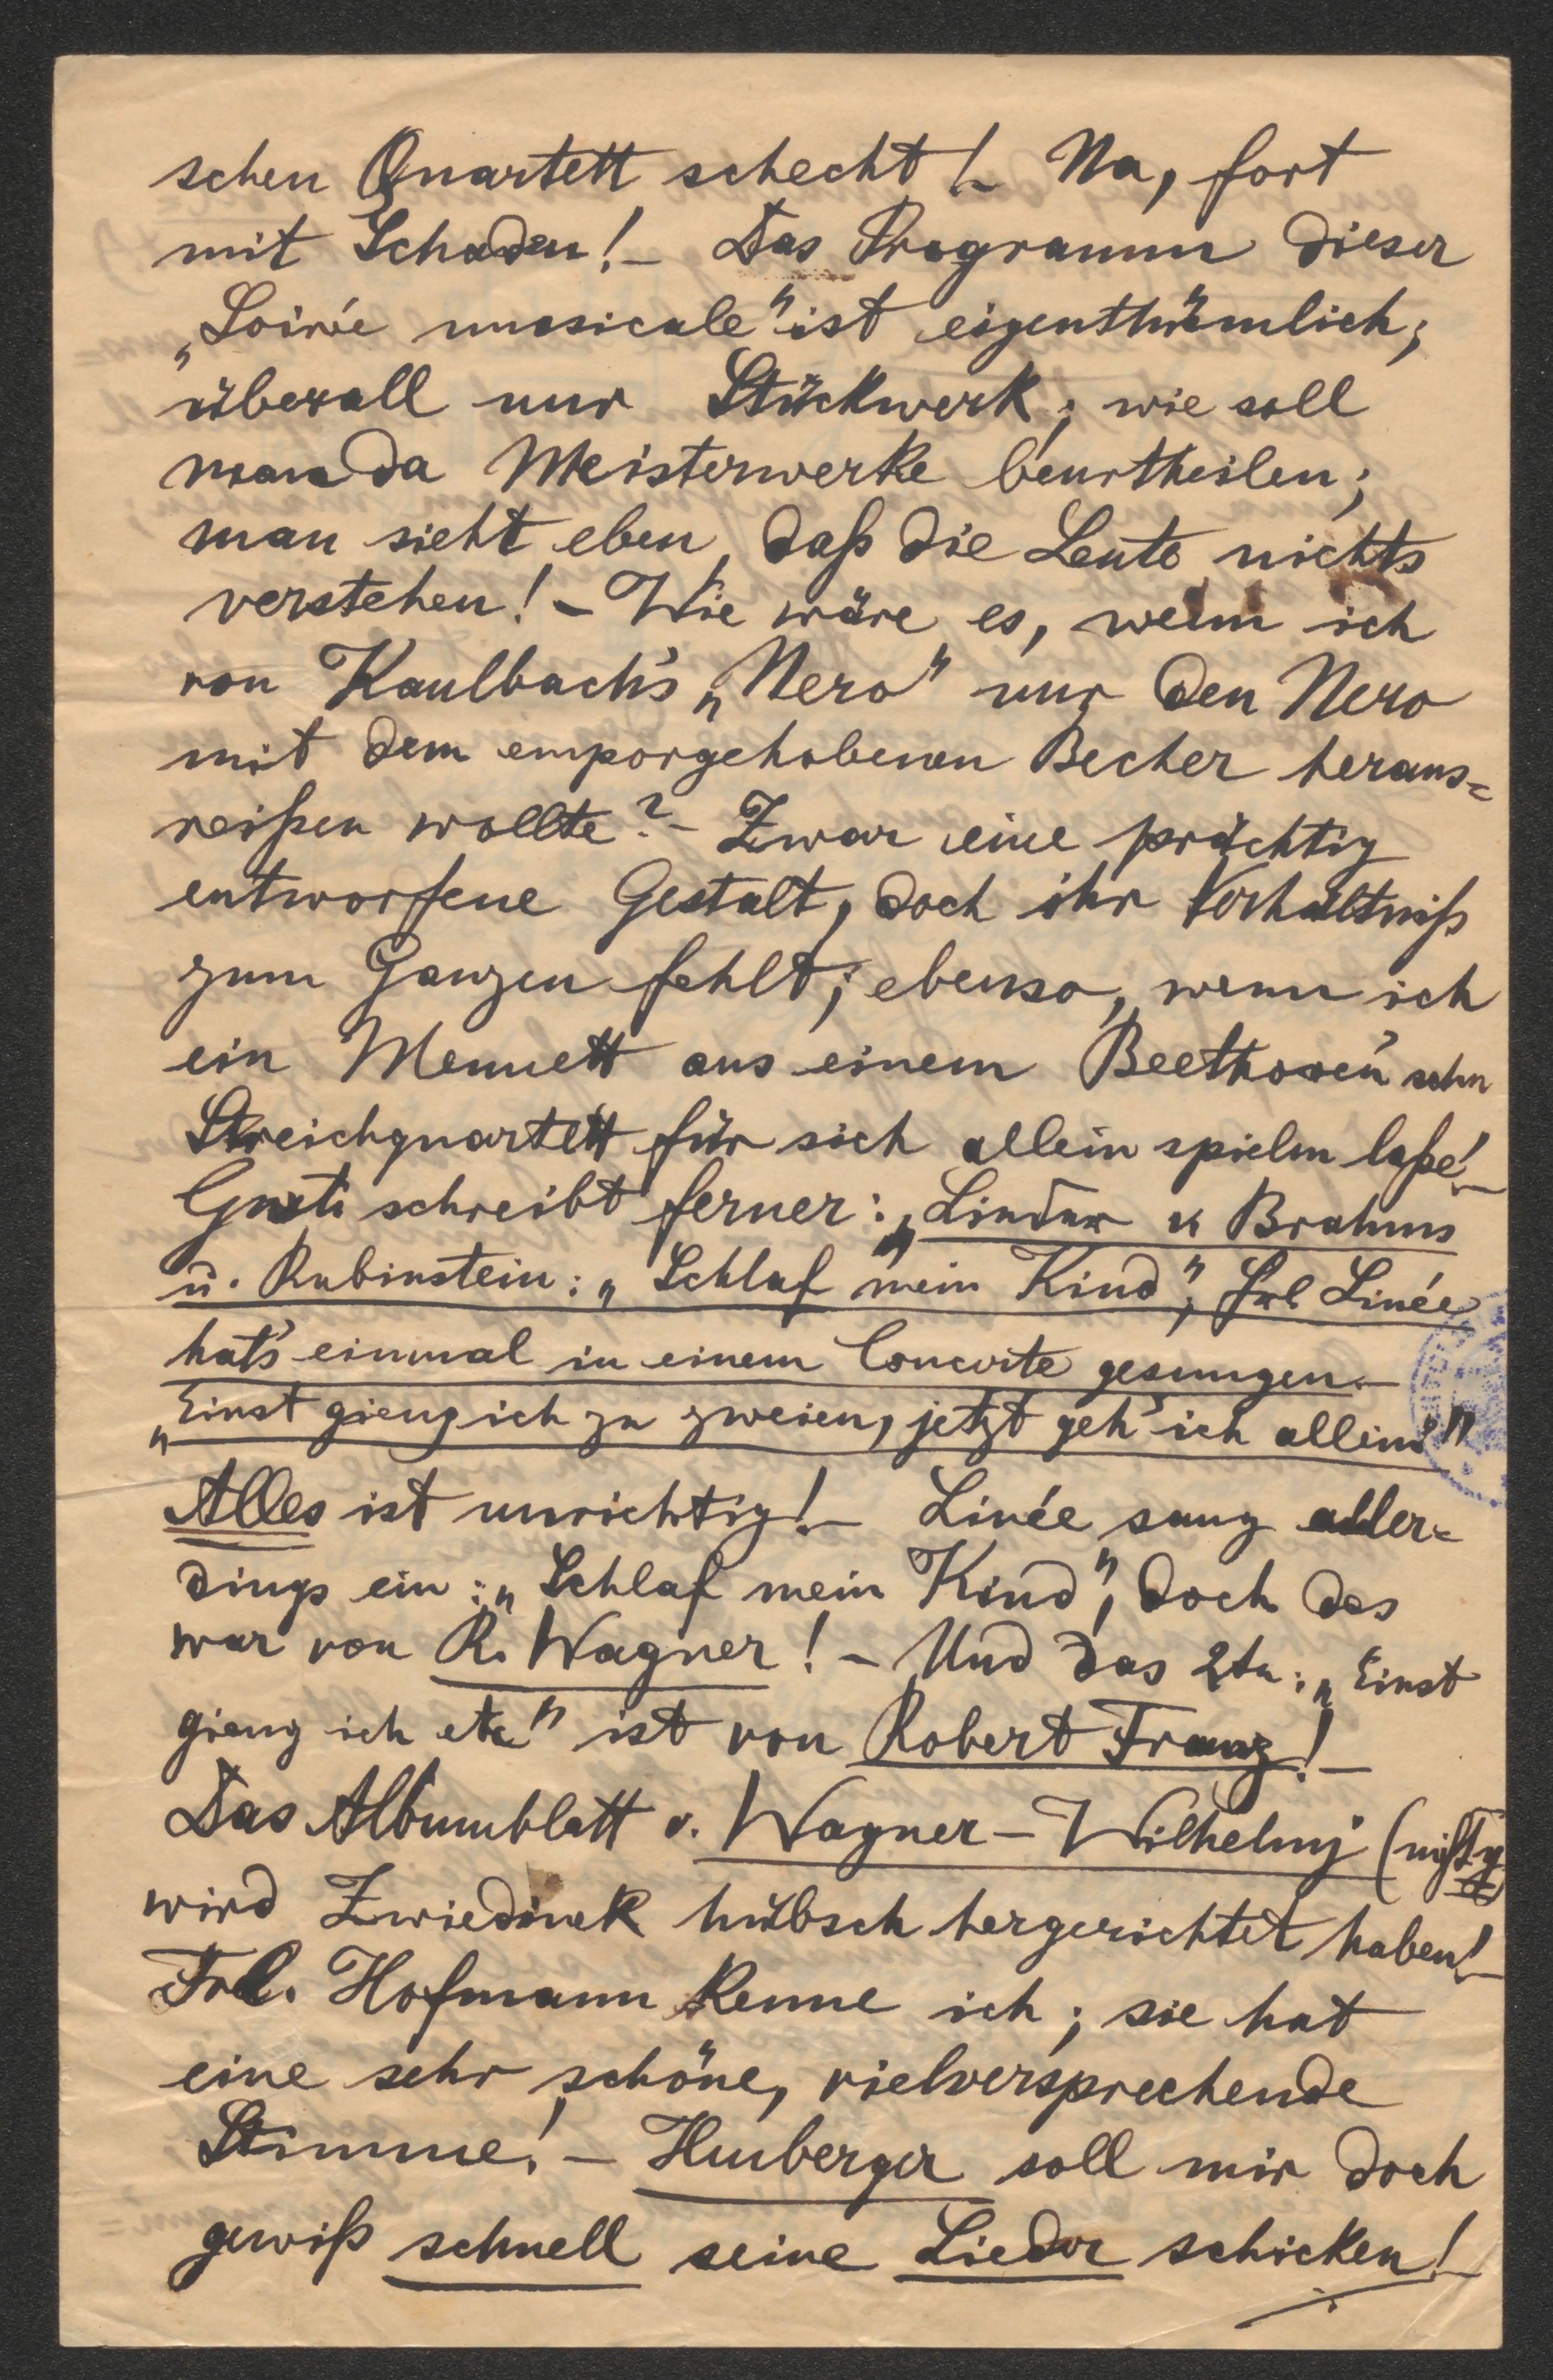 schen Quartett schecht!- Na, fort
mit Schaden!- Das Programm dieser
„Soirée musicale" ist eigenthümlich;
überall nur Stückwerk; wie soll
man da Meisterwerke beurtheilen;
man sieht eben, daß die Leute nichts
verstehen! - Wie wäre es, wenn ich
von Kaulbach's „Nero" nur den Nero
mit dem emporgehobenen Becher heraus=
reißen wollte? - Zwar eine prächtig
entworfene Gestalt, doch ihr Verhältniß
zum Ganzen fehlt; ebenso, wenn ich
ein Menuett aus einem Beethoven'schn
Streichquartett für sich allein spieln laße!-
Gusti schreibt ferner: „Lieder v Brahms
u. Rubinstein: „Schlaf mein Kind", Frl Linée
hat's einmal in einem Concerte gesungen.-
„Einst gieng ich zu zweien, jetzt geh' ich allein""
Alles ist unrichtig!- Linée sang aller=
dings ein: „Schlaf mein Kind", doch das
war von R. Wagner! - Und das 2te: „Einst
gieng ich etc" ist von Robert Franz!-
Das Albumblatt v. Wagner-Wilhelmj (nicht y)
wird Zwiedinek hübsch hergerichtet haben!-
Frl. Hofmann kenne ich; sie hat
eine sehr schöne, vielversprechende
Stimme! - Heuberger soll mir doch
gewiß schnell seine Lieder schicken!-